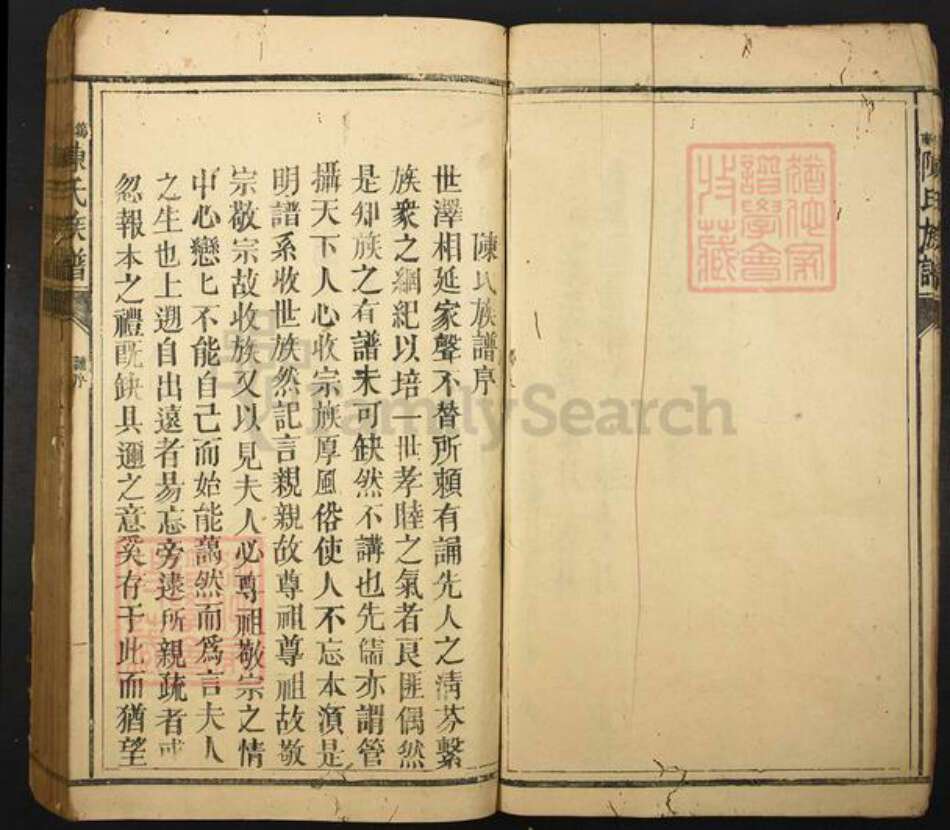 陳氏族譜
猶他家
譜學會
收藏
陳氏族譜序
世澤相延家聲不替所賴有誦先人之清芬繫
族衆之綱紀以培一世孝睦之氣者良匪偶然
是知族之有譜未可缺然不講也先儒亦謂管
攝天下人心收宗族厚風俗使人不忘本湏是
明譜系收世族然記言親親故尊祖尊祖故敬
宗敬宗故收族又以見夫人必尊祖敬宗之情
中心戀匕不能自己而始能藹然而爲言夫人
之生也上遡自出遠者易忘旁逮所親疏者或
忽報本之禮既缺具邇之意奚存于此而猶望
陳氏族譜
譜序
FamilySearch